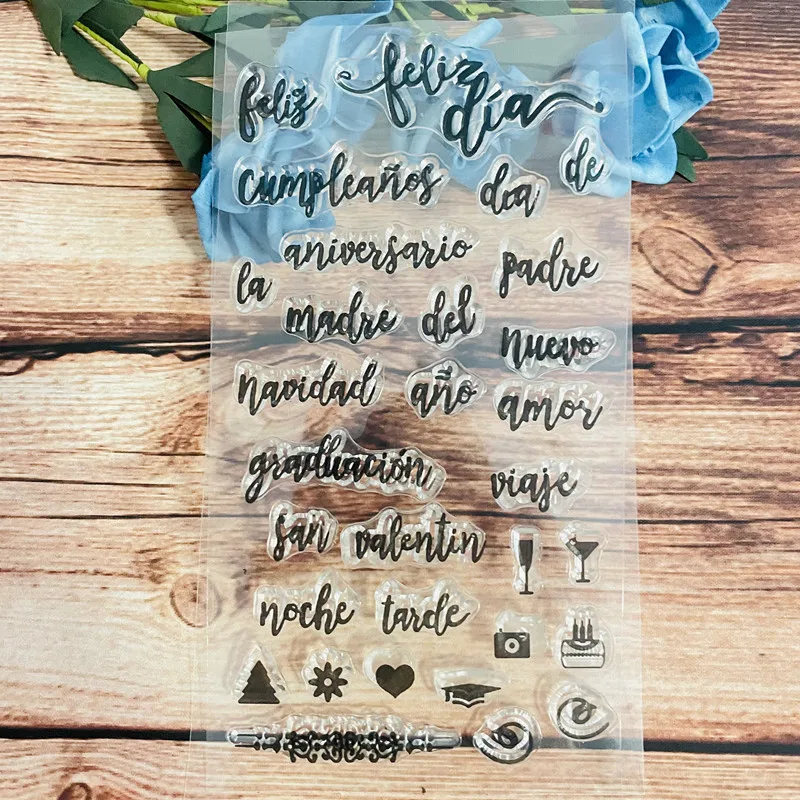 feliz feliz día
cumpleaños dra de
la aniversario padre
madre del nuevo
navidad año amor
graduación viaje
san valentin
noche tarde